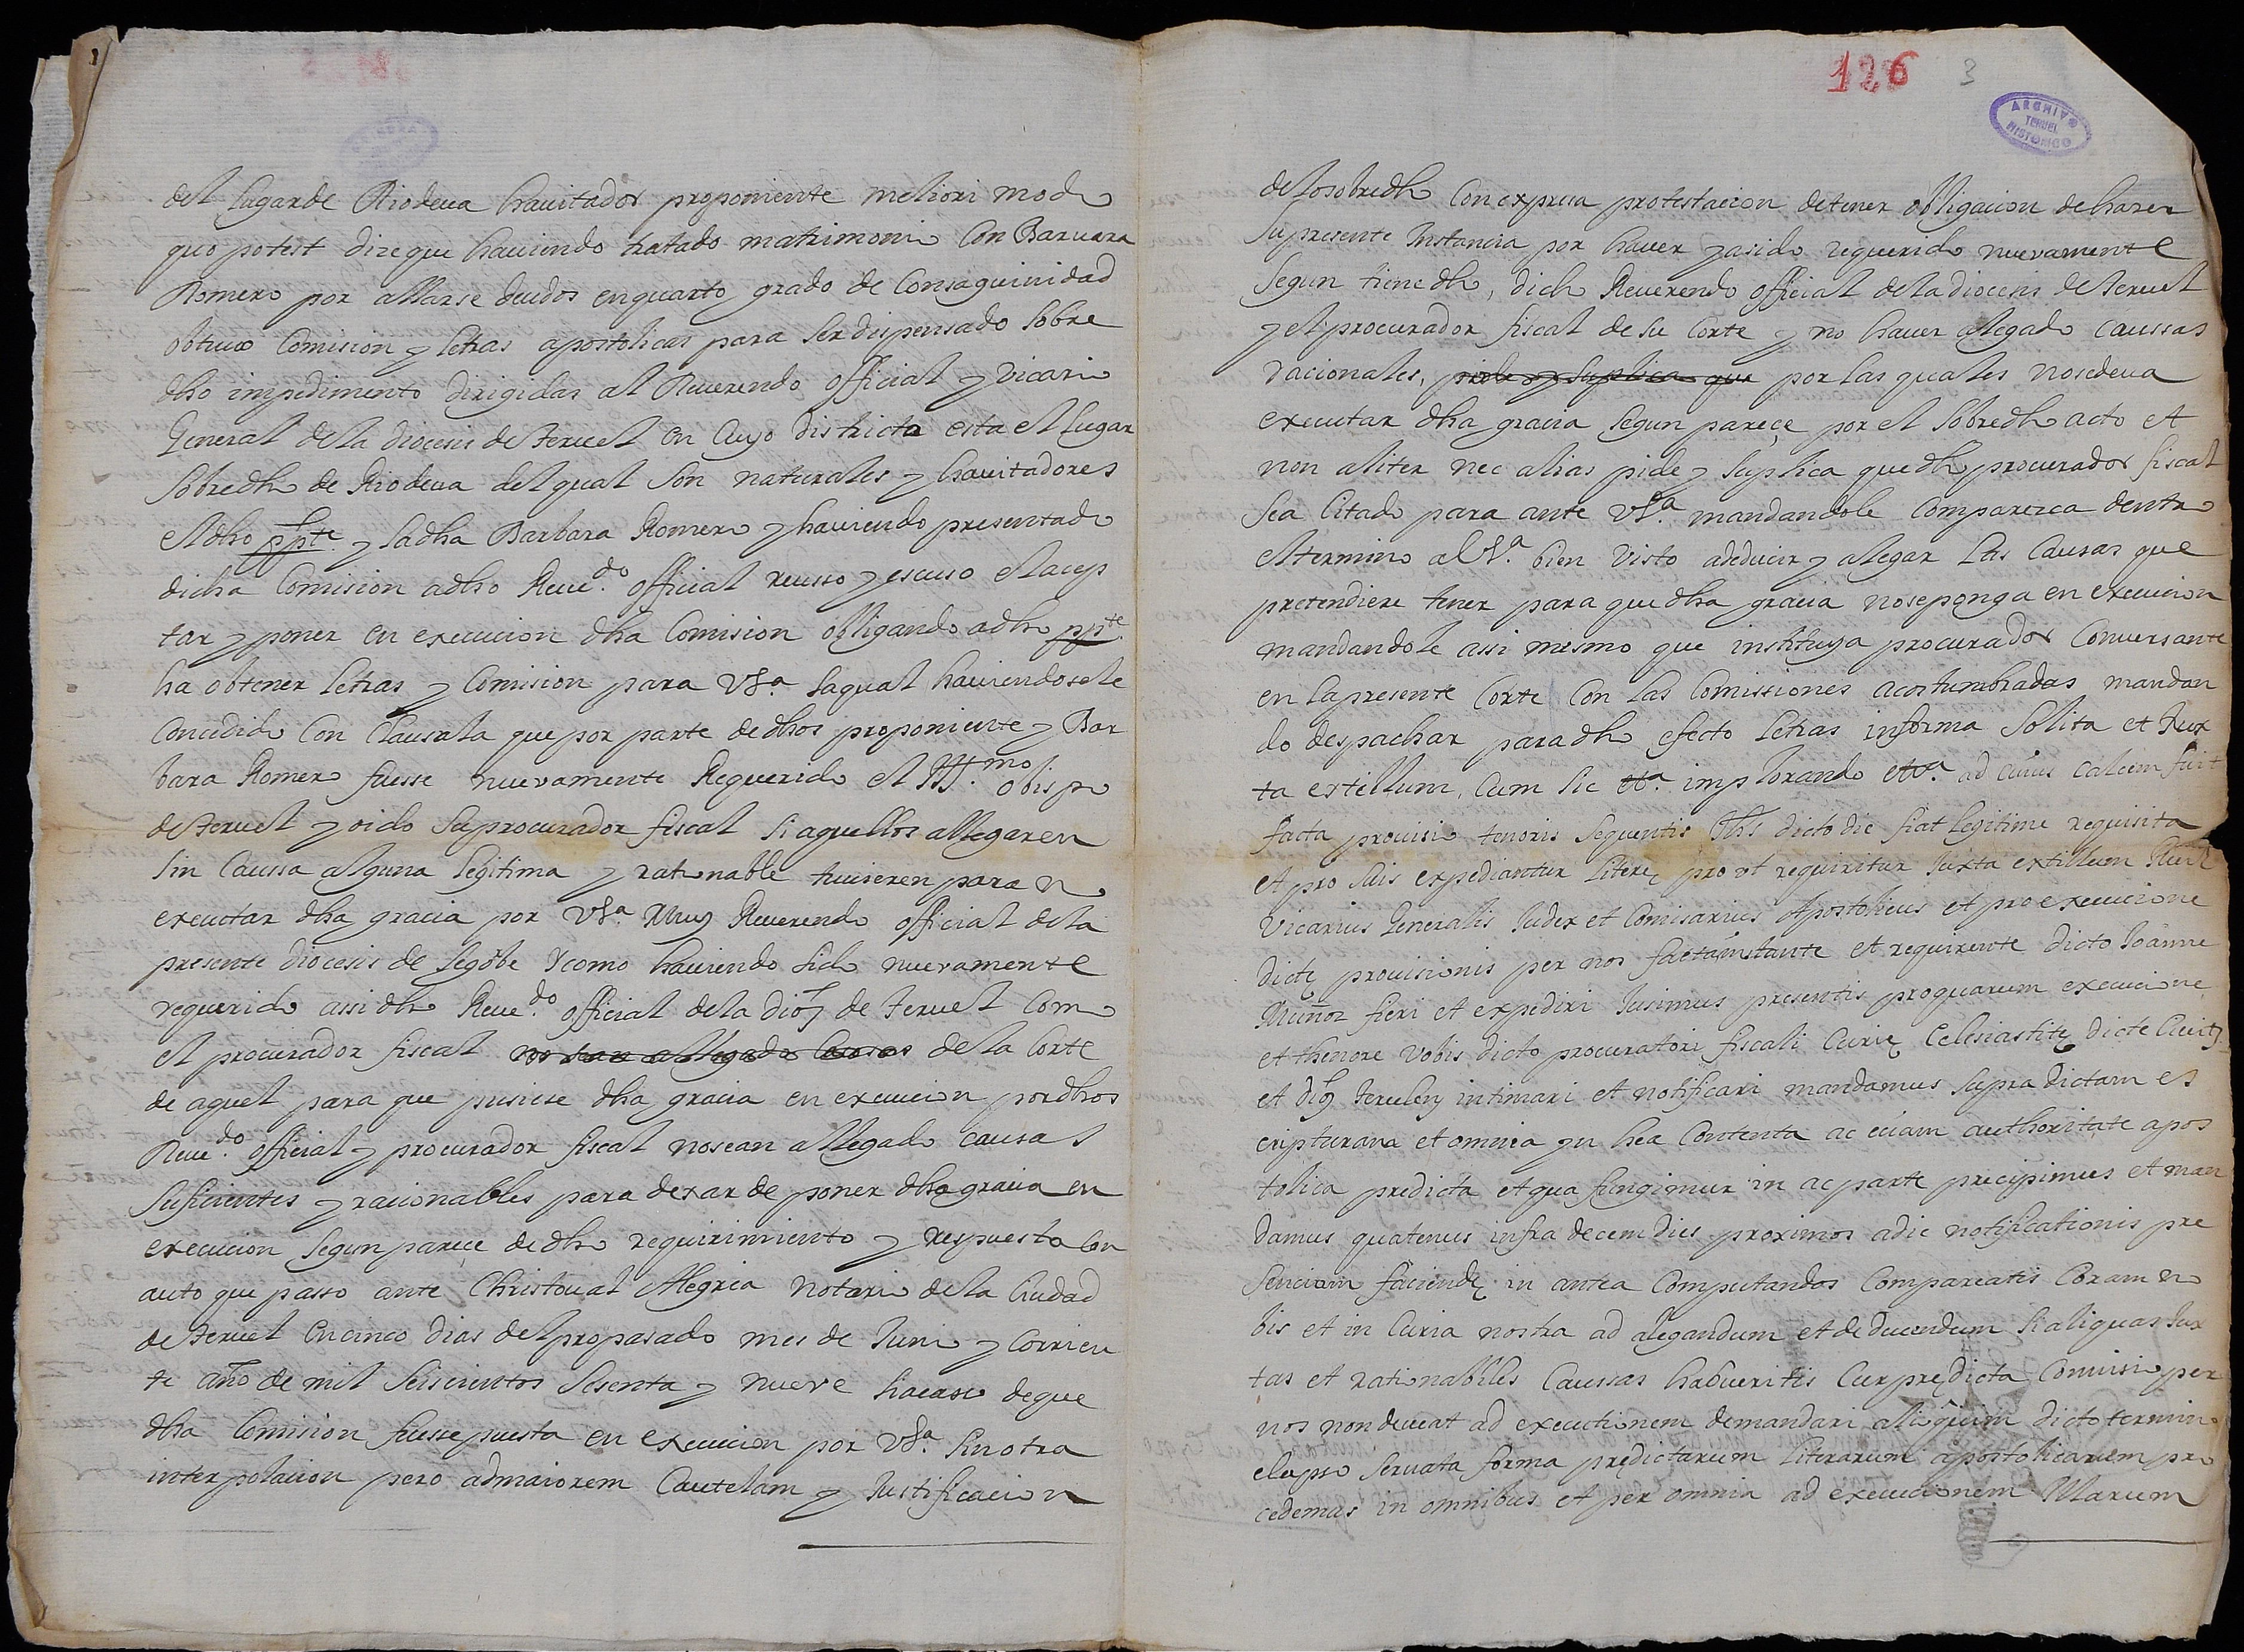 del lugar de Riodeua hauitador proponiente meliori modo
quo potest dize que hauiendo tratado matrimonio Con Baruara
Romero por allarse deudos en quarto grado de Consaguinidad
obtuuo Comision y letras apostolicas para ser dispensado sobre
dho impedimento dirigidas al Reuerendo official y vicario
General de la diocesis de teruel en cuyo districto esta el lugar
sobredho de Riodeua del qual son naturales y hauitadores
el dho ppte y la dha Barbara Romero y hauiendo presentado
dicha Comision a dho Reue.do official recusso y escuso el acep
tar y poner en execucion dha Comision obligando a dho ppte
ha obtener letras y Comision para VSa. la qual hauiendosele
Concedido Con Clausula que por parte de dhos proponiente y Bar
bara Romero fuesse nueuamente Requerido el Ill.mo obispo
de teruel y oido su procurador fiscal si aquellos allegaren
sin Caussa alguna legitima y rationable tuuieren para no
executar dha gracia por VSa. Muy Reuerendo official de la
presente diocesis de segorbe Y como hauiendo sido nueuamente
requerido assi dho Reue.do official de la dioz de teruel Como
el procurador fiscal no sean allegado Causas de la Corte
de aquel para que pusiese dha gracia en execucion por dhos
Reue.do official y procurador fiscal no sean allegado causas
suficientes y racionables para dexar de poner dha gracia en
execucion segun pareçe de dho requirimiento y respuesta Con
auto que passo ante Christoual Alegria notario de la Ciudad
de teruel en cinco dias del propasado mes de Junio y Corrien
te año de mil seiscientos sesenta y nueve si acaso de que
dha Comision fuesse puesta en execucion por VSa. sin otra
interpolacion pero ad maiorem Cautelam y Justificacion
126 3
ARCHIVO
HISTORICO
TERUEL
de lo sobredho Con expresa protestacion de tener obligacion de hazer
su presente Instancia por hauer ya sido requerido nuevamente
segun tiene dho, dicho Reuerendo official de la diocesis de teruel
y el procurador fiscal de su Corte y no hauer alegado caussas
racionales, pide y suplica que por las quales no se deua
executar dha gracia segun pareçe por el sobredho acto et
non aliter nec alias pide y suplica que dho procurador fiscal
sea Citado para ante VSa. mandandole Comparezca dentro
el termino a VSa. bien visto a deducir y alegar las Causas que
pretendiere tener para que dha gracia no se ponga en execucion
mandandole assi mesmo que instituya procurador Conuersante
en la presente Corte Con las Comissiones acostumbradas mandan
do despachar para dho efecto letras in forma solita et Jux
ta extillum, Cum sic eta. implorando etva. ad cuius calcem fuit
facta prouisio tenoris sequentis Jhs dicto die fiat legitime requisita
et pro suis expediantur litere pro vt requiritur Juxta extillum
Vicarius Generalis Judex et Comisarius Apostolicus et pro execucione
dictę prouisionis per nos facta instante et requirente dicto Joanne
Muñoz fieri et expediri Jusimus presentis pro quarum execucione
et thenore vobis dicto procuratori fiscali Curię Eclesiastitę dicte Ciuitz
et dioz terulen intimari et notificari mandamus supra dictam es
cripturam et omnia yn hea Contenta ac eciam authoritate apos
tolica predicta et qua fungimur in ac parte precipimus et man
damus quatenus infra decem dies proximos a die notificationis pre
sencium faciendę in antea Computandos Compareatis Coram no
bis et in Curia nostra ad alegandum et deducendum si aliquas Jux
tas et rationabiles Caussas habueritis Cur prędicta Comisio per
nos non deueat ad executionem demandari alioquim dicto termino
elapso seruata forma prędictarum literarum apostolicarum pro
cedemus in omnibus et per omnia ad execucionem Illarum